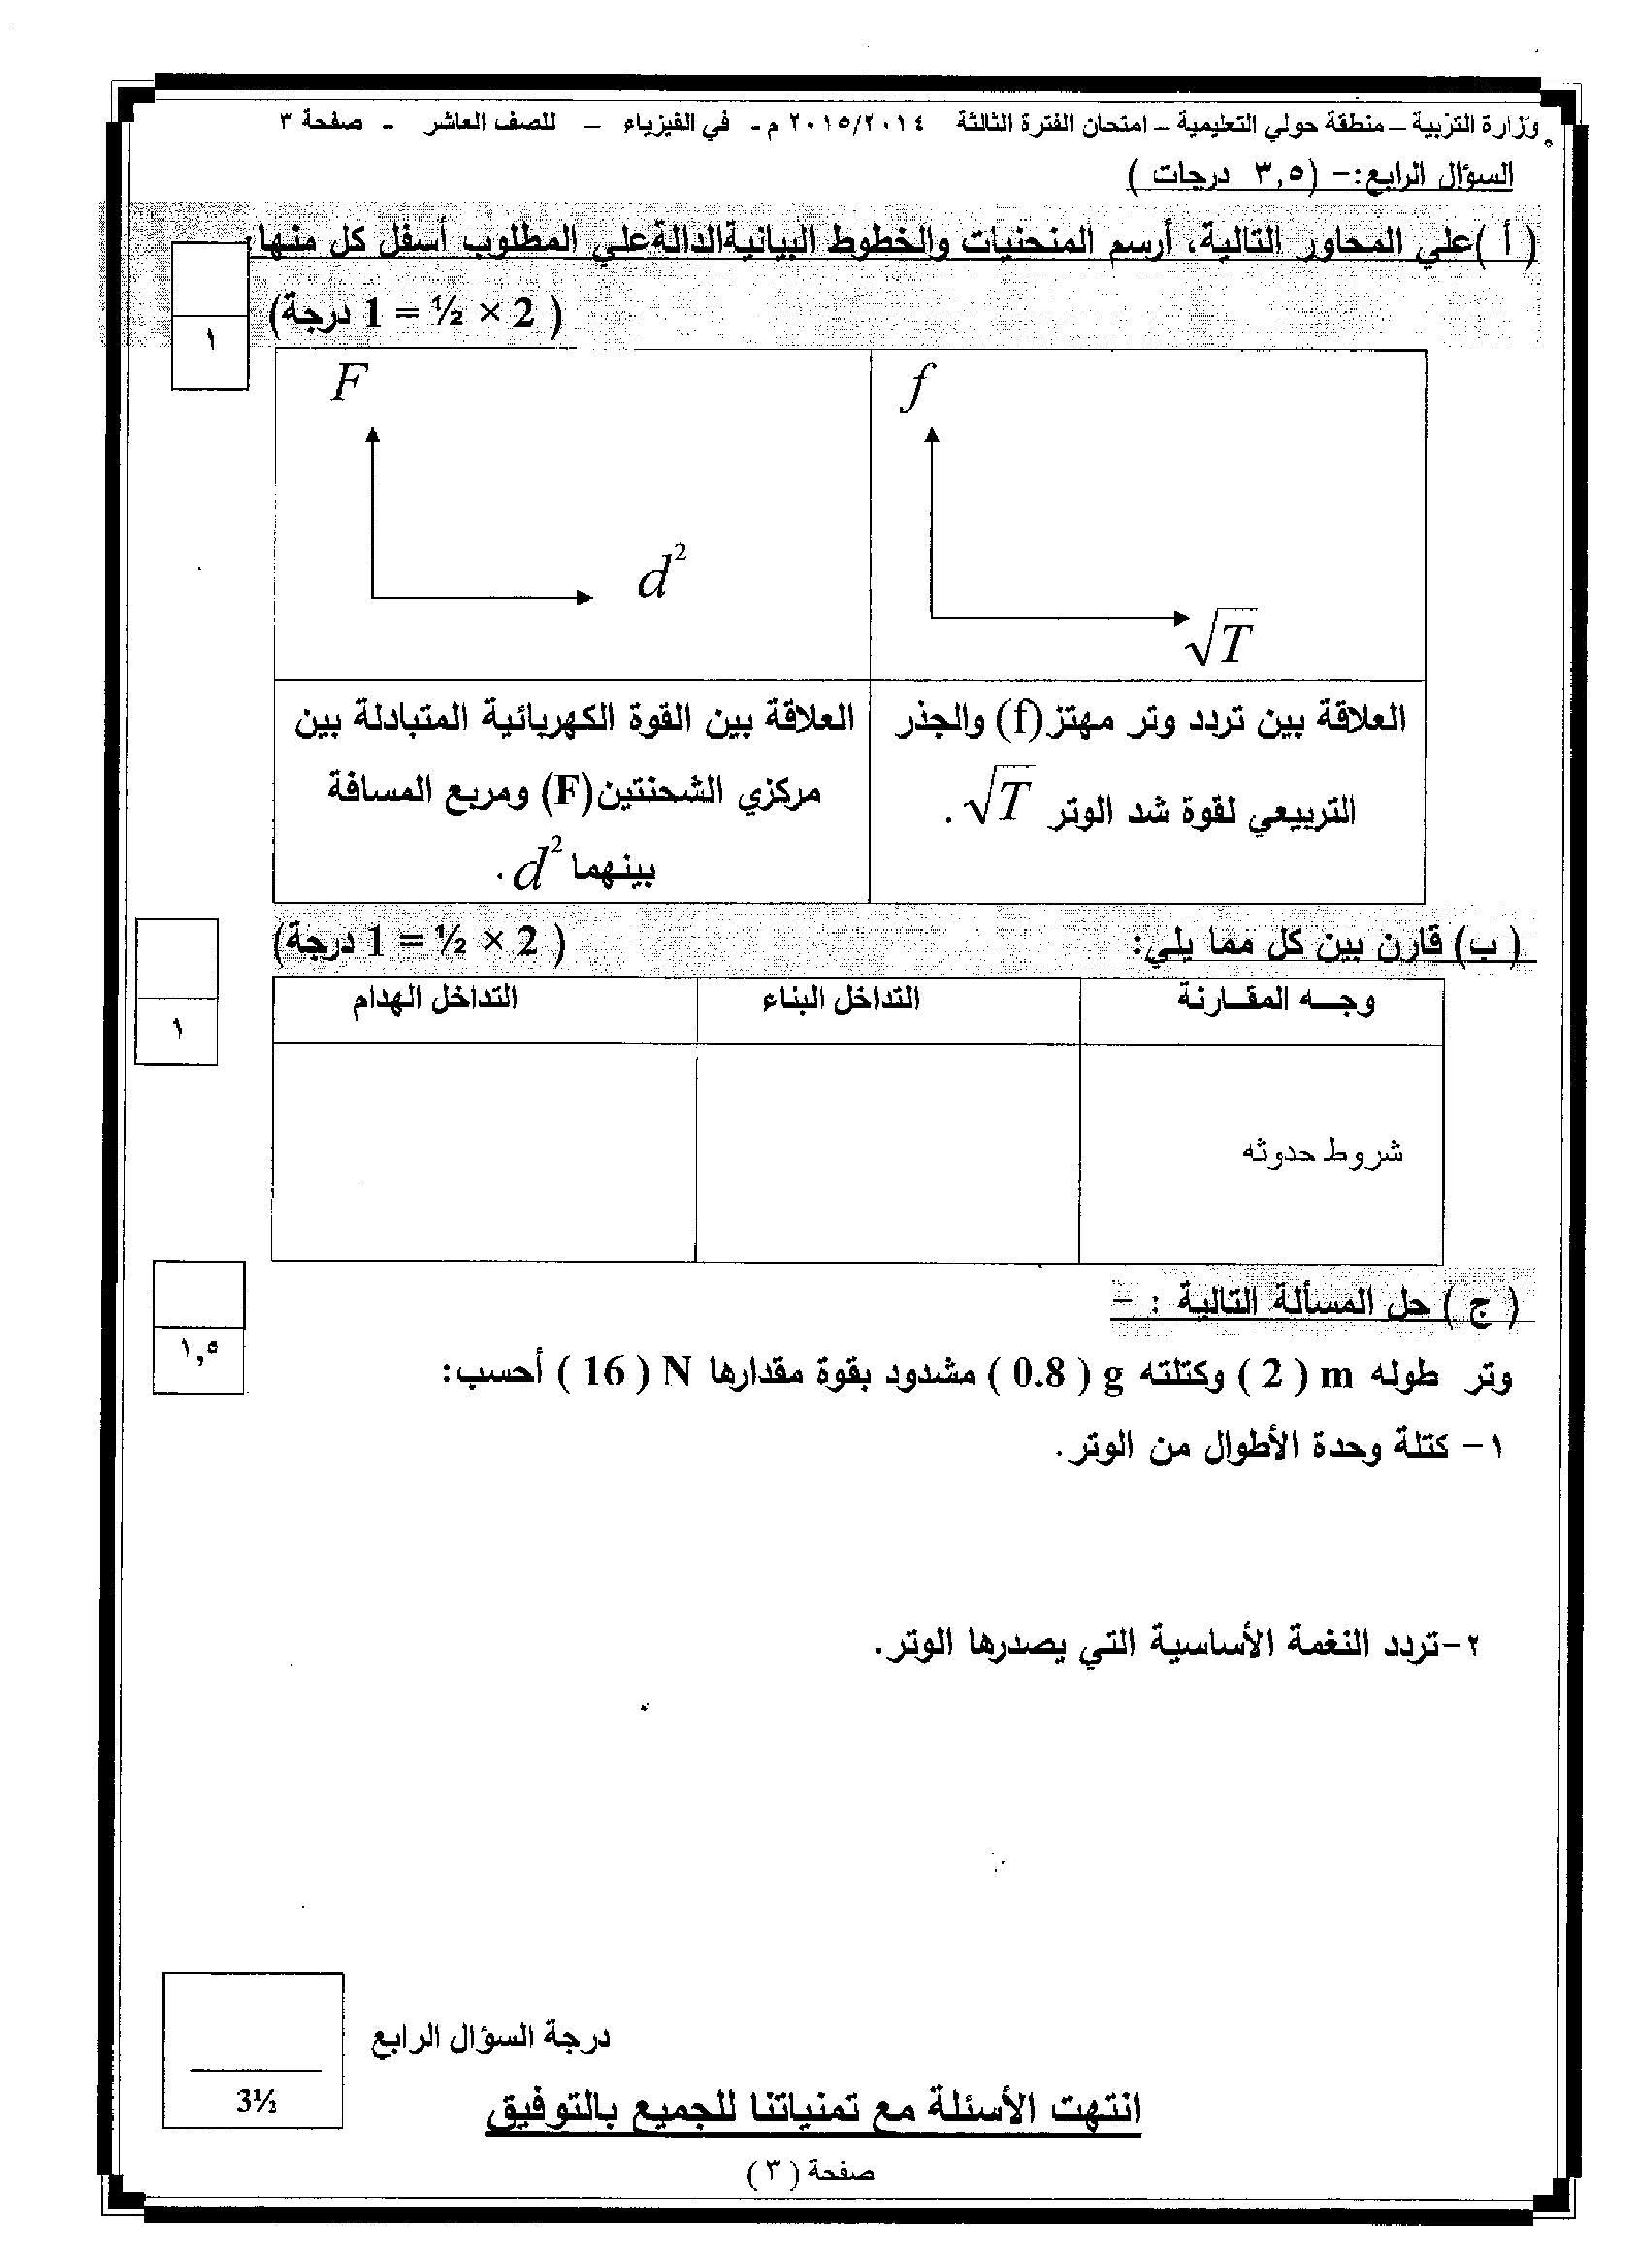 وزارة التربية – منطقة حولي التعليمية – امتحان الفترة الثالثة ٢٠١٥/٢٠١٤ م - في الفيزياء – للصف العاشر - صفحة ٣
السؤال الرابع:– (٣,٥ درجات )
( أ )علي المحاور التالية، أرسم المنحنيات والخطوط البيانيةالدالةعلي المطلوب أسفل كل منها:
( 2 × ½ = 1 درجة)
١
f
F
√T
d²
العلاقة بين تردد وتر مهتز(f) والجذر
التربيعي لقوة شد الوتر √T .
العلاقة بين القوة الكهربائية المتبادلة بين
مركزي الشحنتين(F) ومربع المسافة
بينهما d² .
( ب) قارن بين كل مما يلي: ( 2 × ½ = 1 درجة)
١
وجـــه المقــارنة التداخل البناء التداخل الهدام
شروط حدوثه
( ج ) حل المسألة التالية : –
١,٥
وتر طوله m ( 2 ) وكتلته g ( 0.8 ) مشدود بقوة مقدارها N ( 16 ) أحسب:
١– كتلة وحدة الأطوال من الوتر.
٢–تردد النغمة الأساسية التي يصدرها الوتر.
درجة السؤال الرابع
3½
انتهت الأسئلة مع تمنياتنا للجميع بالتوفيق
صفحة ( ٣ )